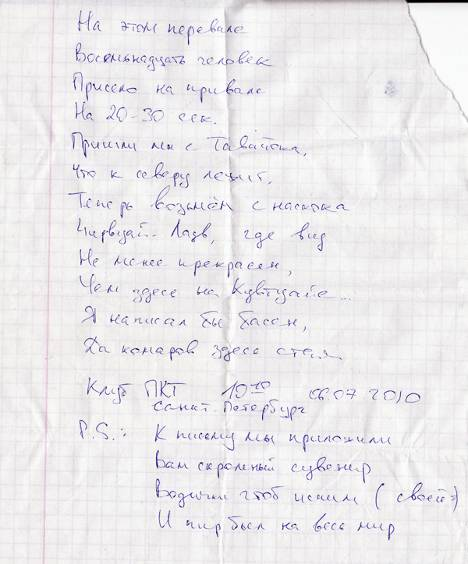 На этом перевале
Восемьнадцать человек
Присело на привале
На 20-30 сек.
Пришли мы с Тавайока,
Что к северу лежит,
Теперь возьмём с наскока
Лазв, где вид
Не менее прекрасен,
Чем здесь на
Я написал бы басен,
Да комаров здесь стая.
Клуб ПКТ 10¹⁰ 06.07 2010
Санкт-Петербург
P.S.: К письму мы приложили
Вам скромный сувенир
Водички чтоб испили (своей)
И пир был на весь мир